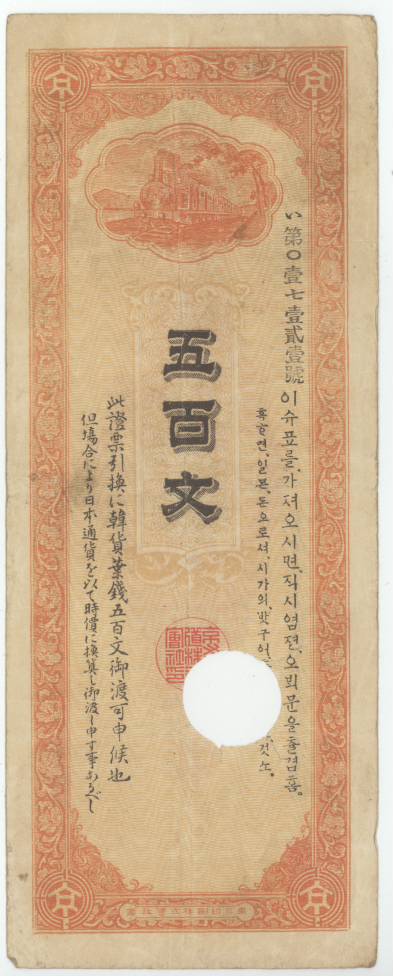 い第〇壹七壹貳壹號
이슈표를,가져오시면,직시염젼,오ᄇᆡᆨ문을츌급홈。
면,일본,돈으로셔,시가의,맛구어
五百文
此證票引換に韓貨葉錢五百文御渡可申候也
但場合により日本通貨を以て時價に換算し御渡し申す事あるべし